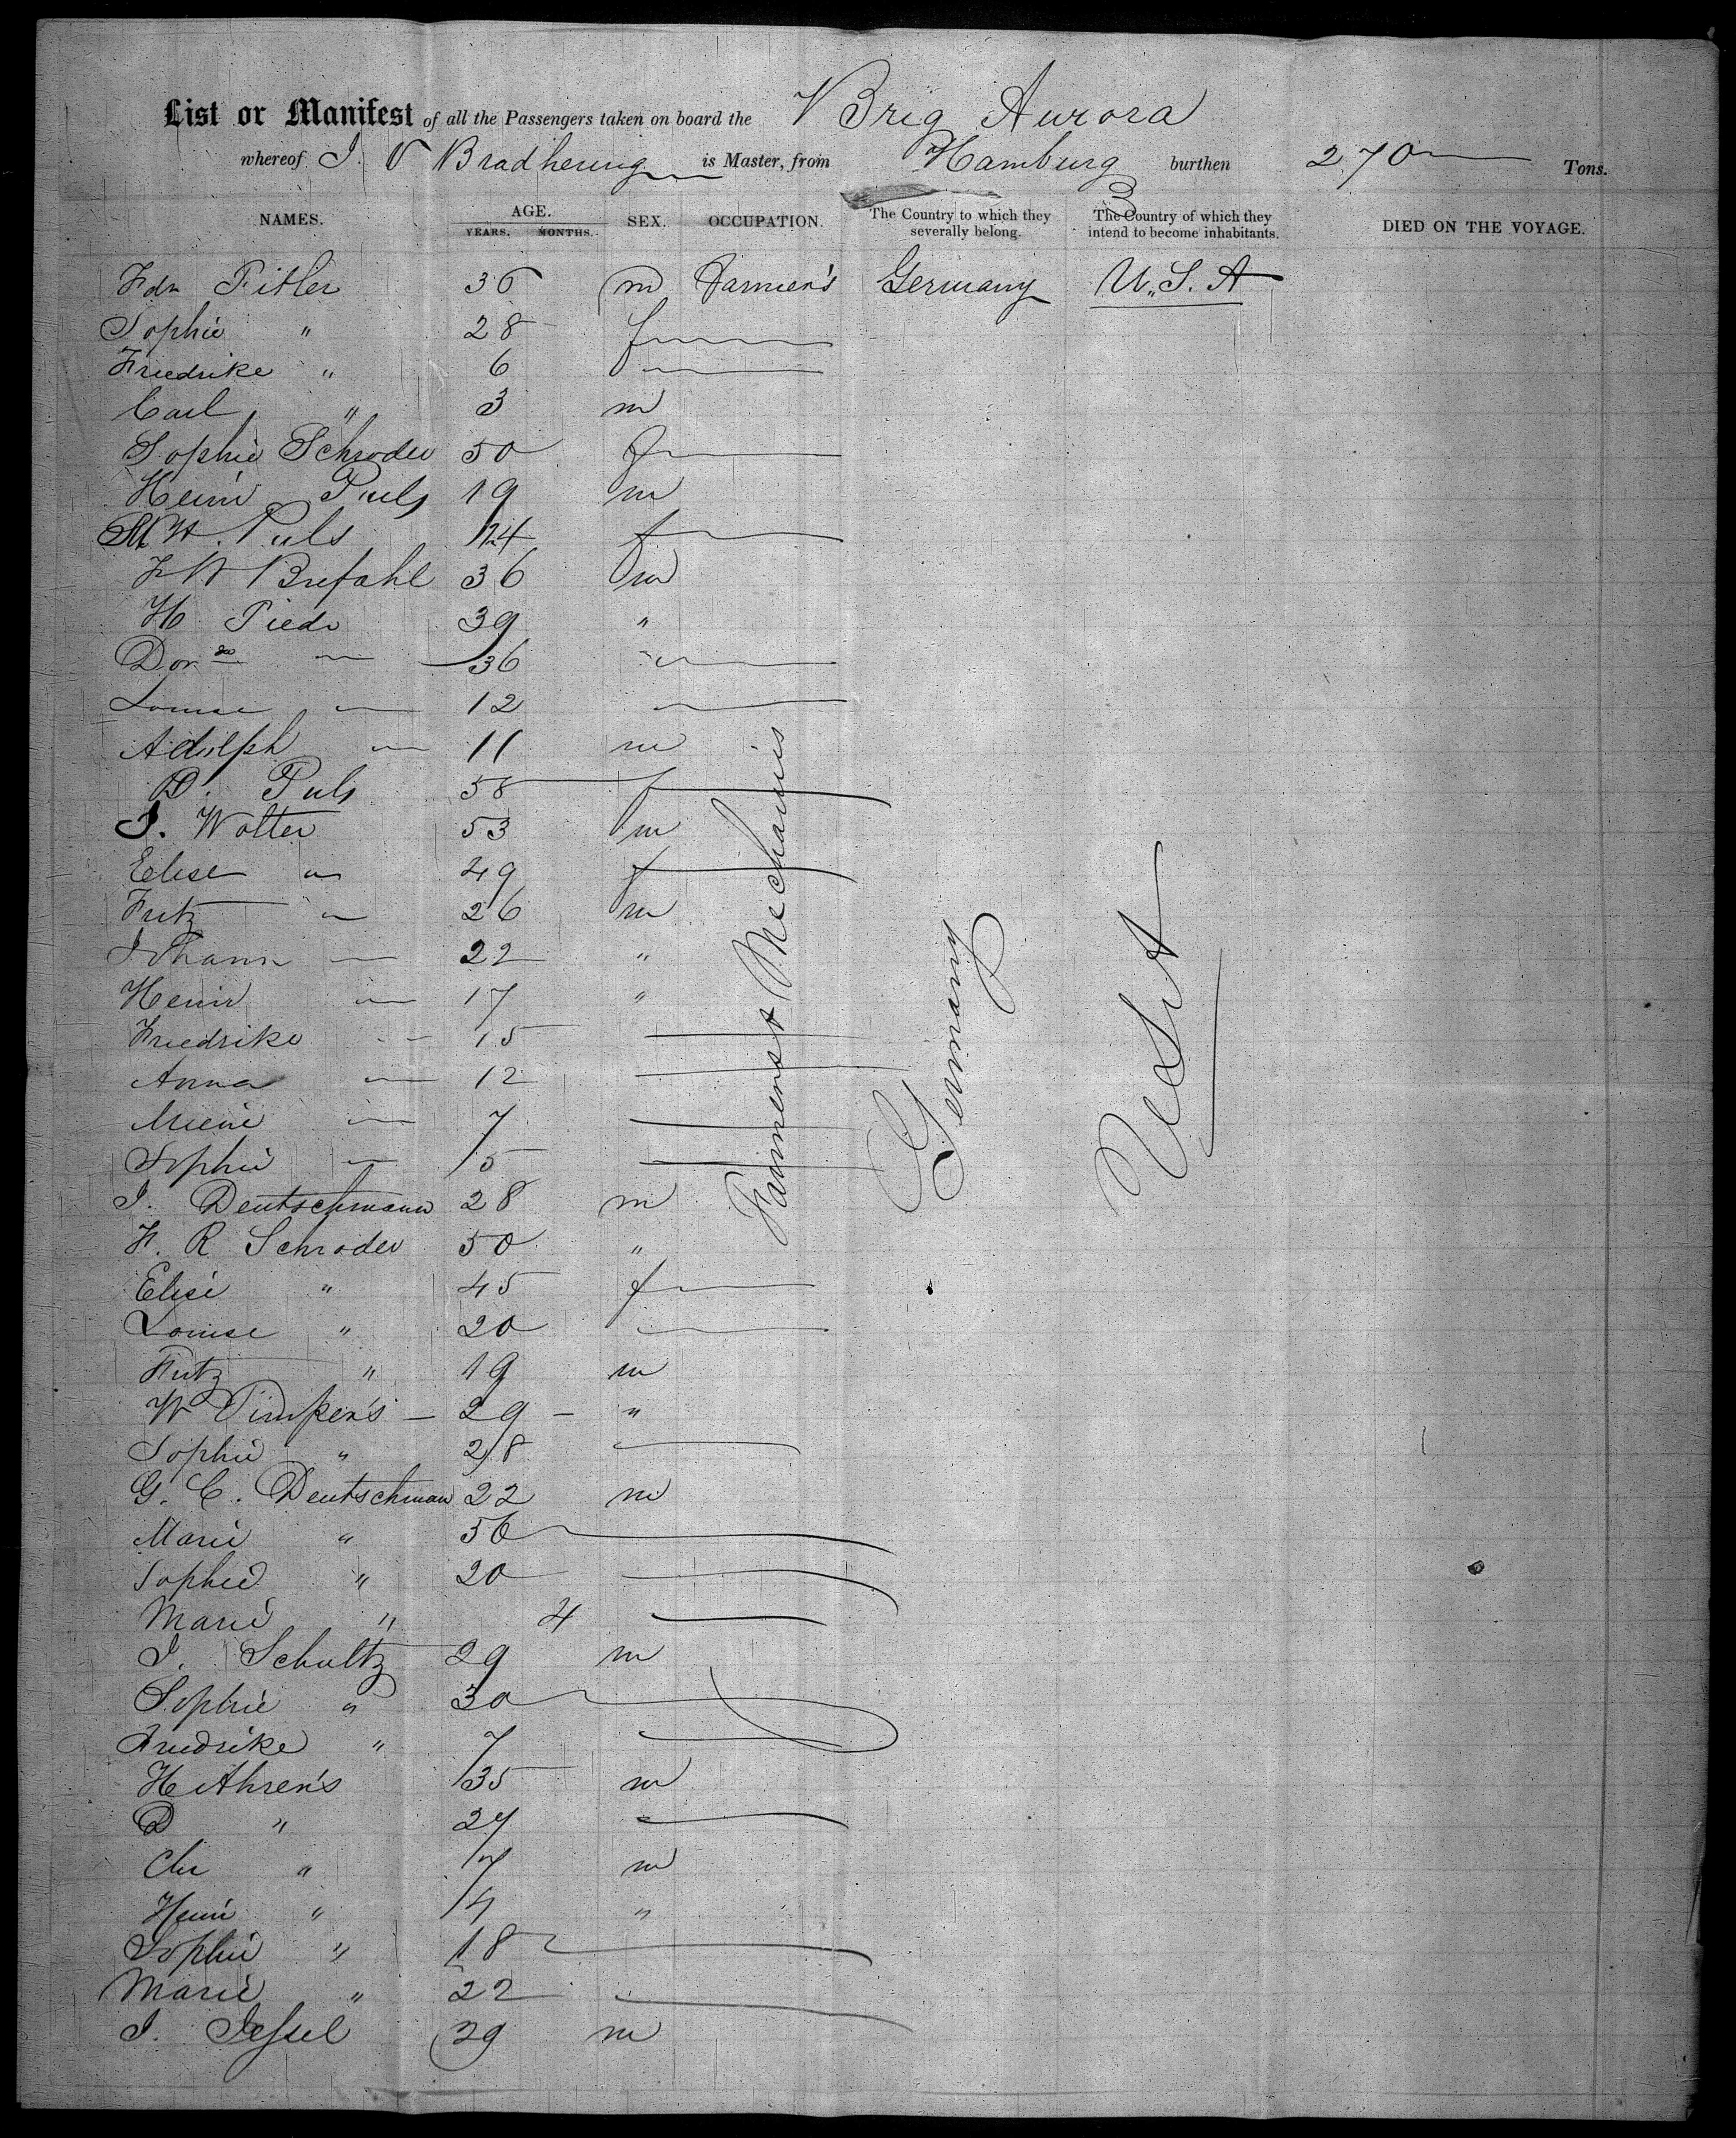 List or Manifest of all the Passengers taken on board the Brig Aurora
whereof J. V Bradhering is Master, from Hamburg burthen 270 Tons.
3
NAMES. AGE. YEARS. MONTHS. SEX. OCCUPATION. The Country to which they severally belong. The Country of which they intend to become inhabitants. DIED ON THE VOYAGE.
Pitler 36 m Farmer's Germany U.S.A
Sophie " 28 f
Friedrike " 6
Carl " 3 m
Sophie Schroder 50 f
Heinr Puls 19 m
W. Puls 24 f
F W Brefahl 36 m
H. Piedo 39 "
Dor 36
Louise 12
Adolph 11 m
D. Puls 58 f
J. Wolter 53 m
Elise 49 f
Fritz 26 m
Johann 22 "
Heinr 17 "
Friedrike 15
Anna 12
Miene 7
Sophie 5
J. Deutschmann 28 m
F. R Schroder 50 "
Elise " 45 f
Louise " 20
Fritz " 19 m
W Timper's 29 "
Sophie " 28
G. C. Deutschman 22 m
Marie " 56
Sophie " 20
Marie " 4
J. Schultz 29 m
Sophie " 30
Friedrike " 7
H Ahren's 35 m
D " 27
Chr " 7 m
Heinr " 4 "
Sophie " 18
Marie " 22
J. Jessel 29 m
Farmers & Mechanics
Germany
U S A